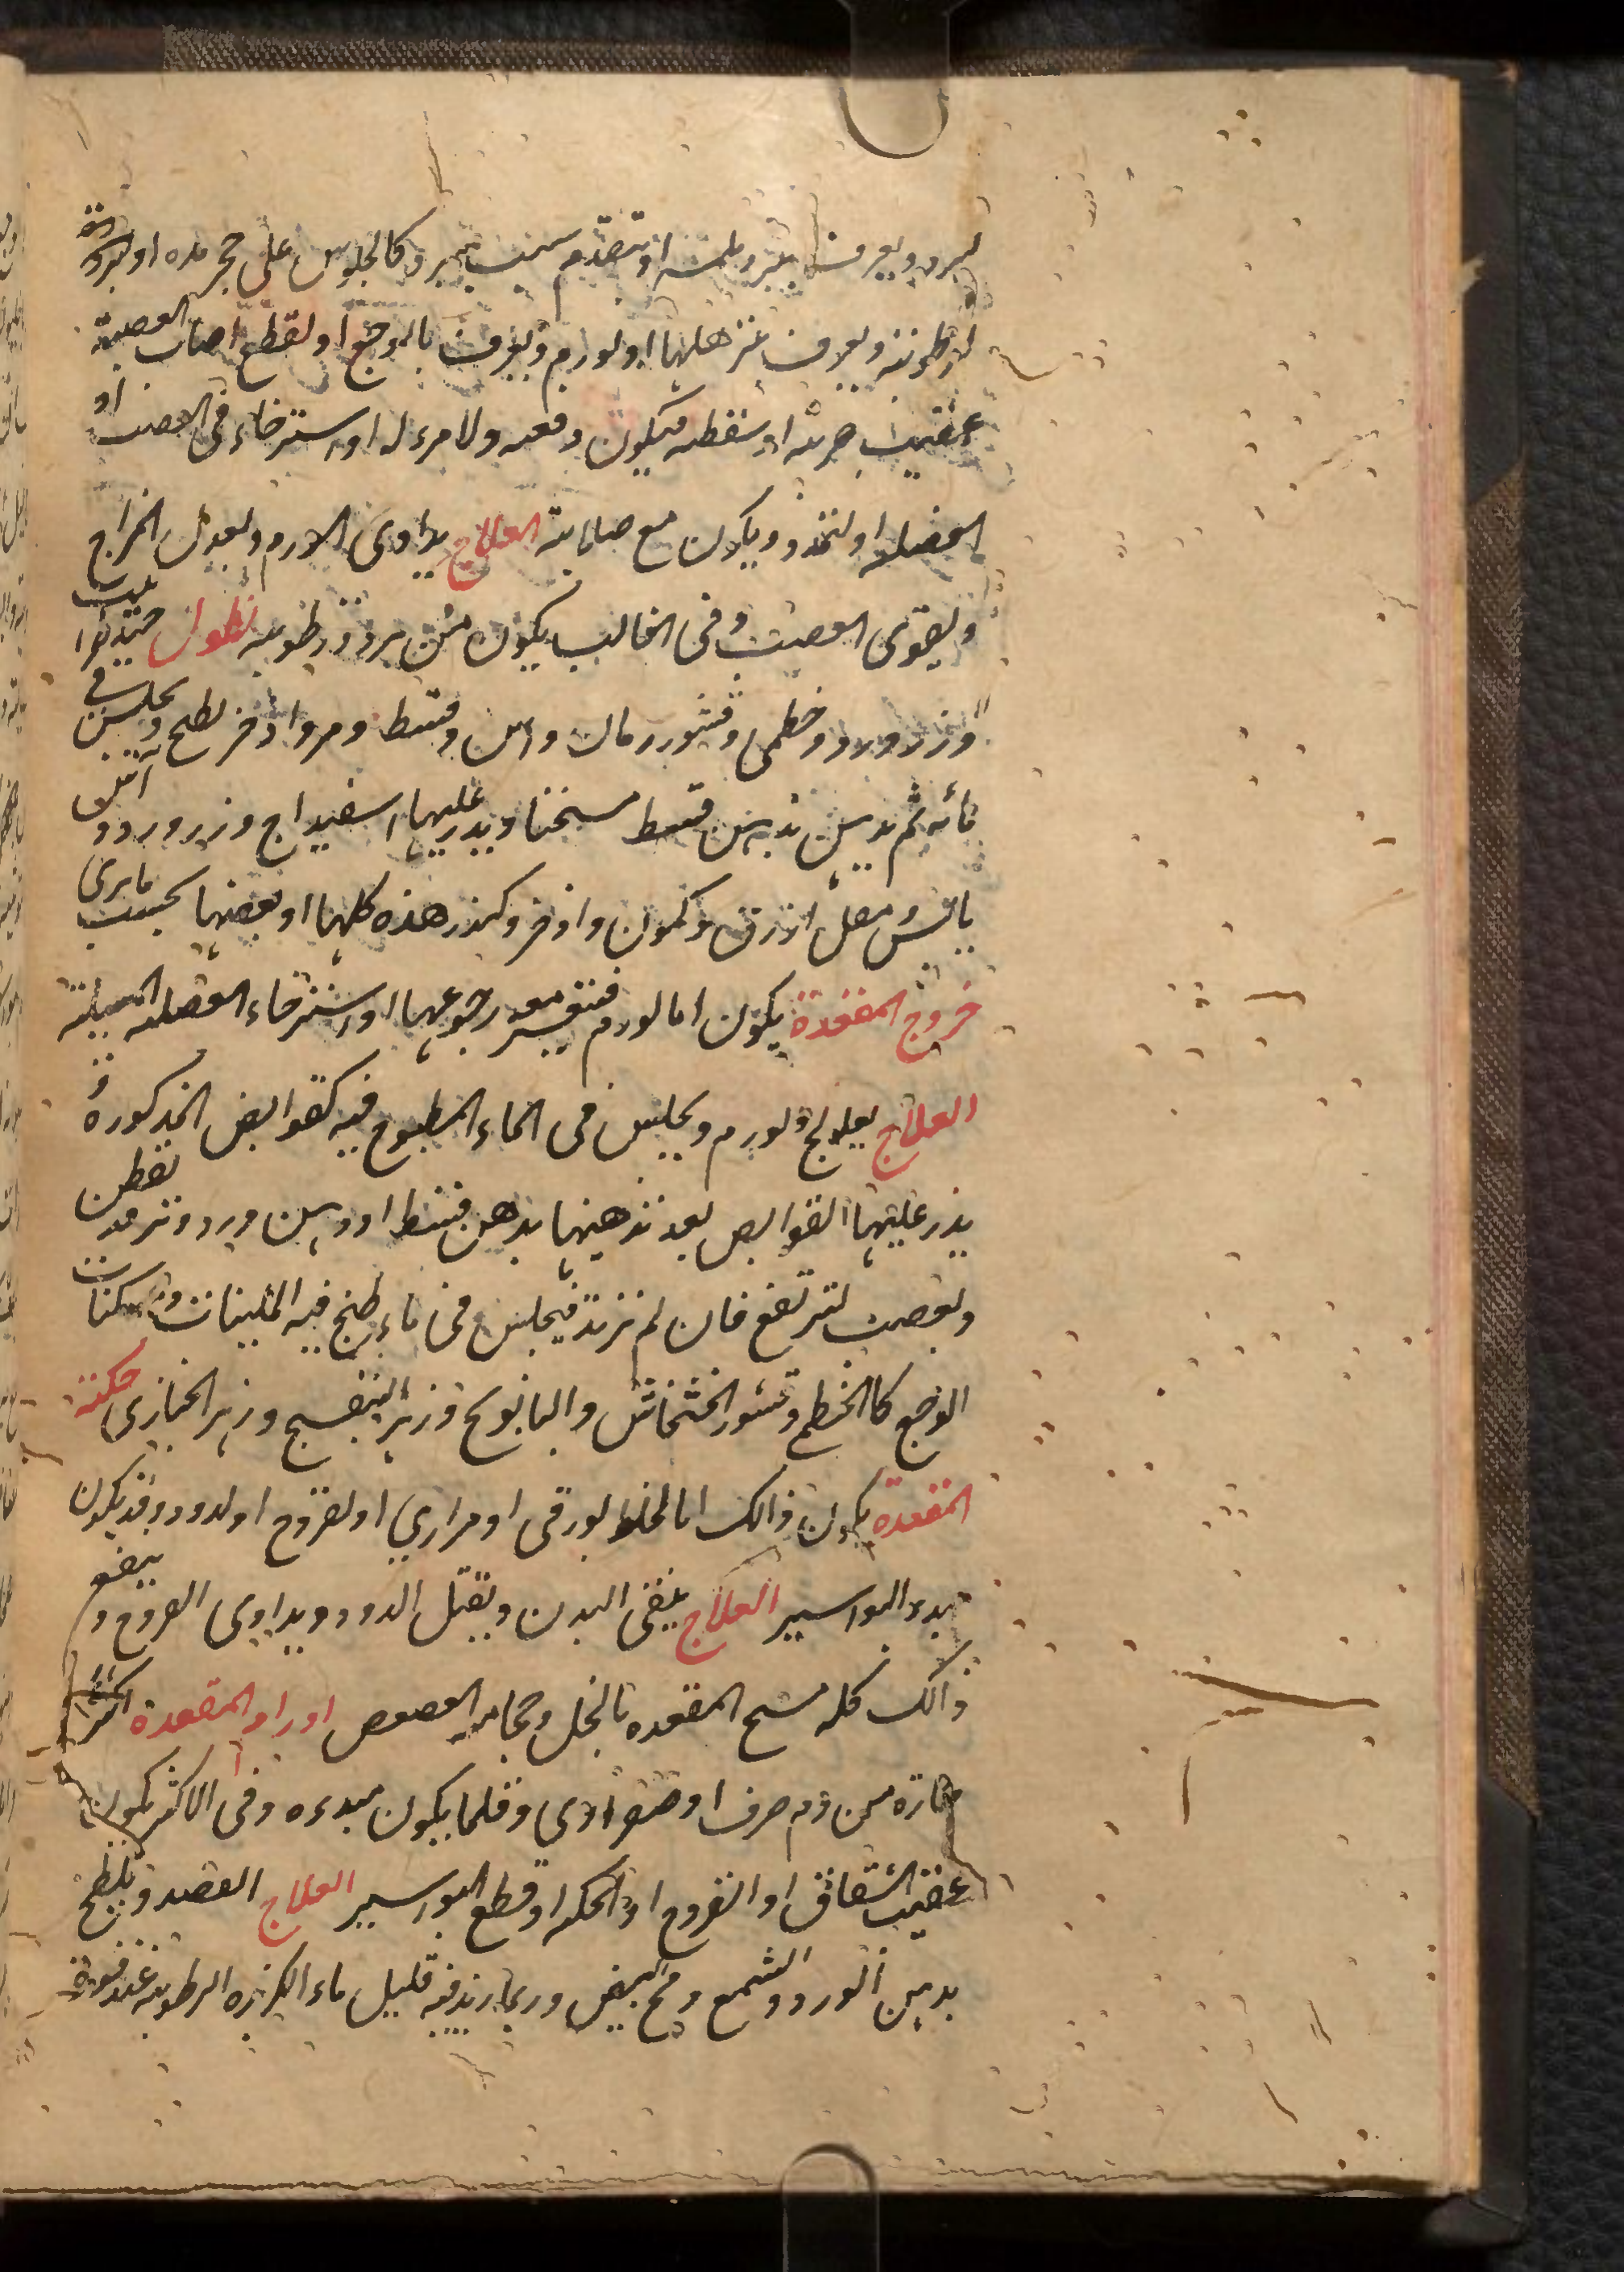 لبرد ويعرف ببرد ملمسه او تقدم سبب مبرد كالجلوس على حجر بارد او لبرد
او لرطوبته ويعرف بترهلها او لورم ويعرف بالوجع او لقطع اصاب العصبة
عقيب ضربه او سقطه فيكون دفعه ولا مرء له او استرخاء فى العصب او
العضله او لتمدد ويكون مع صلابة العلاج يداوى الورم ويعدل المزاج
ويقوى العصب وفى الغالب يكون من برد ورطوبه نطول جيد لهذا
وزر ورد وخطمى وقشور رمان واس وقسط ومر واذخر يطبخ ويجلس فى
مائه ثم يدهن بدهن قسط مسخنا ويذر عليها اسفيداج وزر ورد و
يابس مقل ازرق وكمون واذخر وكندر هذه كلها او بعضها بحسب ما يرى
خروج المقعدة يكون اما لورم فتعسر معه رجوعها او استرخاء العضله المسيله
العلاج يعالج الورم ويجلس فى الماء المطبوخ فيه القوابض المذكورة و
يذر عليها القوابض بعد تدهينها بدهن قسط او دهن ورد وترفد بقطن
وتعصب لترتفع فان لم ترتد فيجلس فى ماء طبخ فيه الملينات ومسكنات
الوجع كالخطمى وقشور الخشخاش والبابونج وزهر البنفسج وزهر الخبازى حكة
المقعدة يكون ذالك اما لخلط بورقى او مراري او لقروح او لدود وقد يكون
بدء البواسير العلاج ينقى البدن ويقتل الدود ويداوى القروح وينفع
ذالك كله مسح المقعده بالخل وحجامه العصعص اورام المقعدة اكثرها
حارة من دم صرف او صفراوي وقلما يكون مبدءه وفى الاكثر يكون
عقيب الشقاق او القروح او الحكه او قطع البواسير العلاج الفصد ويلطخ
بدهن الورد والشمع ومح البيض وربما زيد فيه قليل ماء الكزبره الرطوبه عند قوة